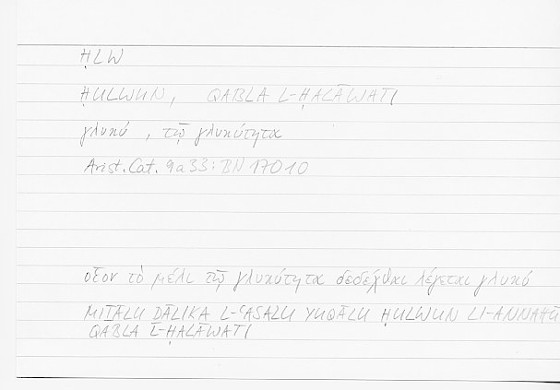 ḤLW
ḤULWUN, QABLA L-ḤALĀWATI
γλυκύ, τῷ γλυκύτητα
Arist. Cat. 9a33: BN 17010
οἷον τὸ μέλι τῷ γλυκύτητα δεδέχθαι λέγεται γλυκύ
MIṮĀLU ḎĀLIKA L-ʿASALU YUQĀLU ḤULWUN LI-ANNAHŪ
QABLA L-ḤALĀWATI